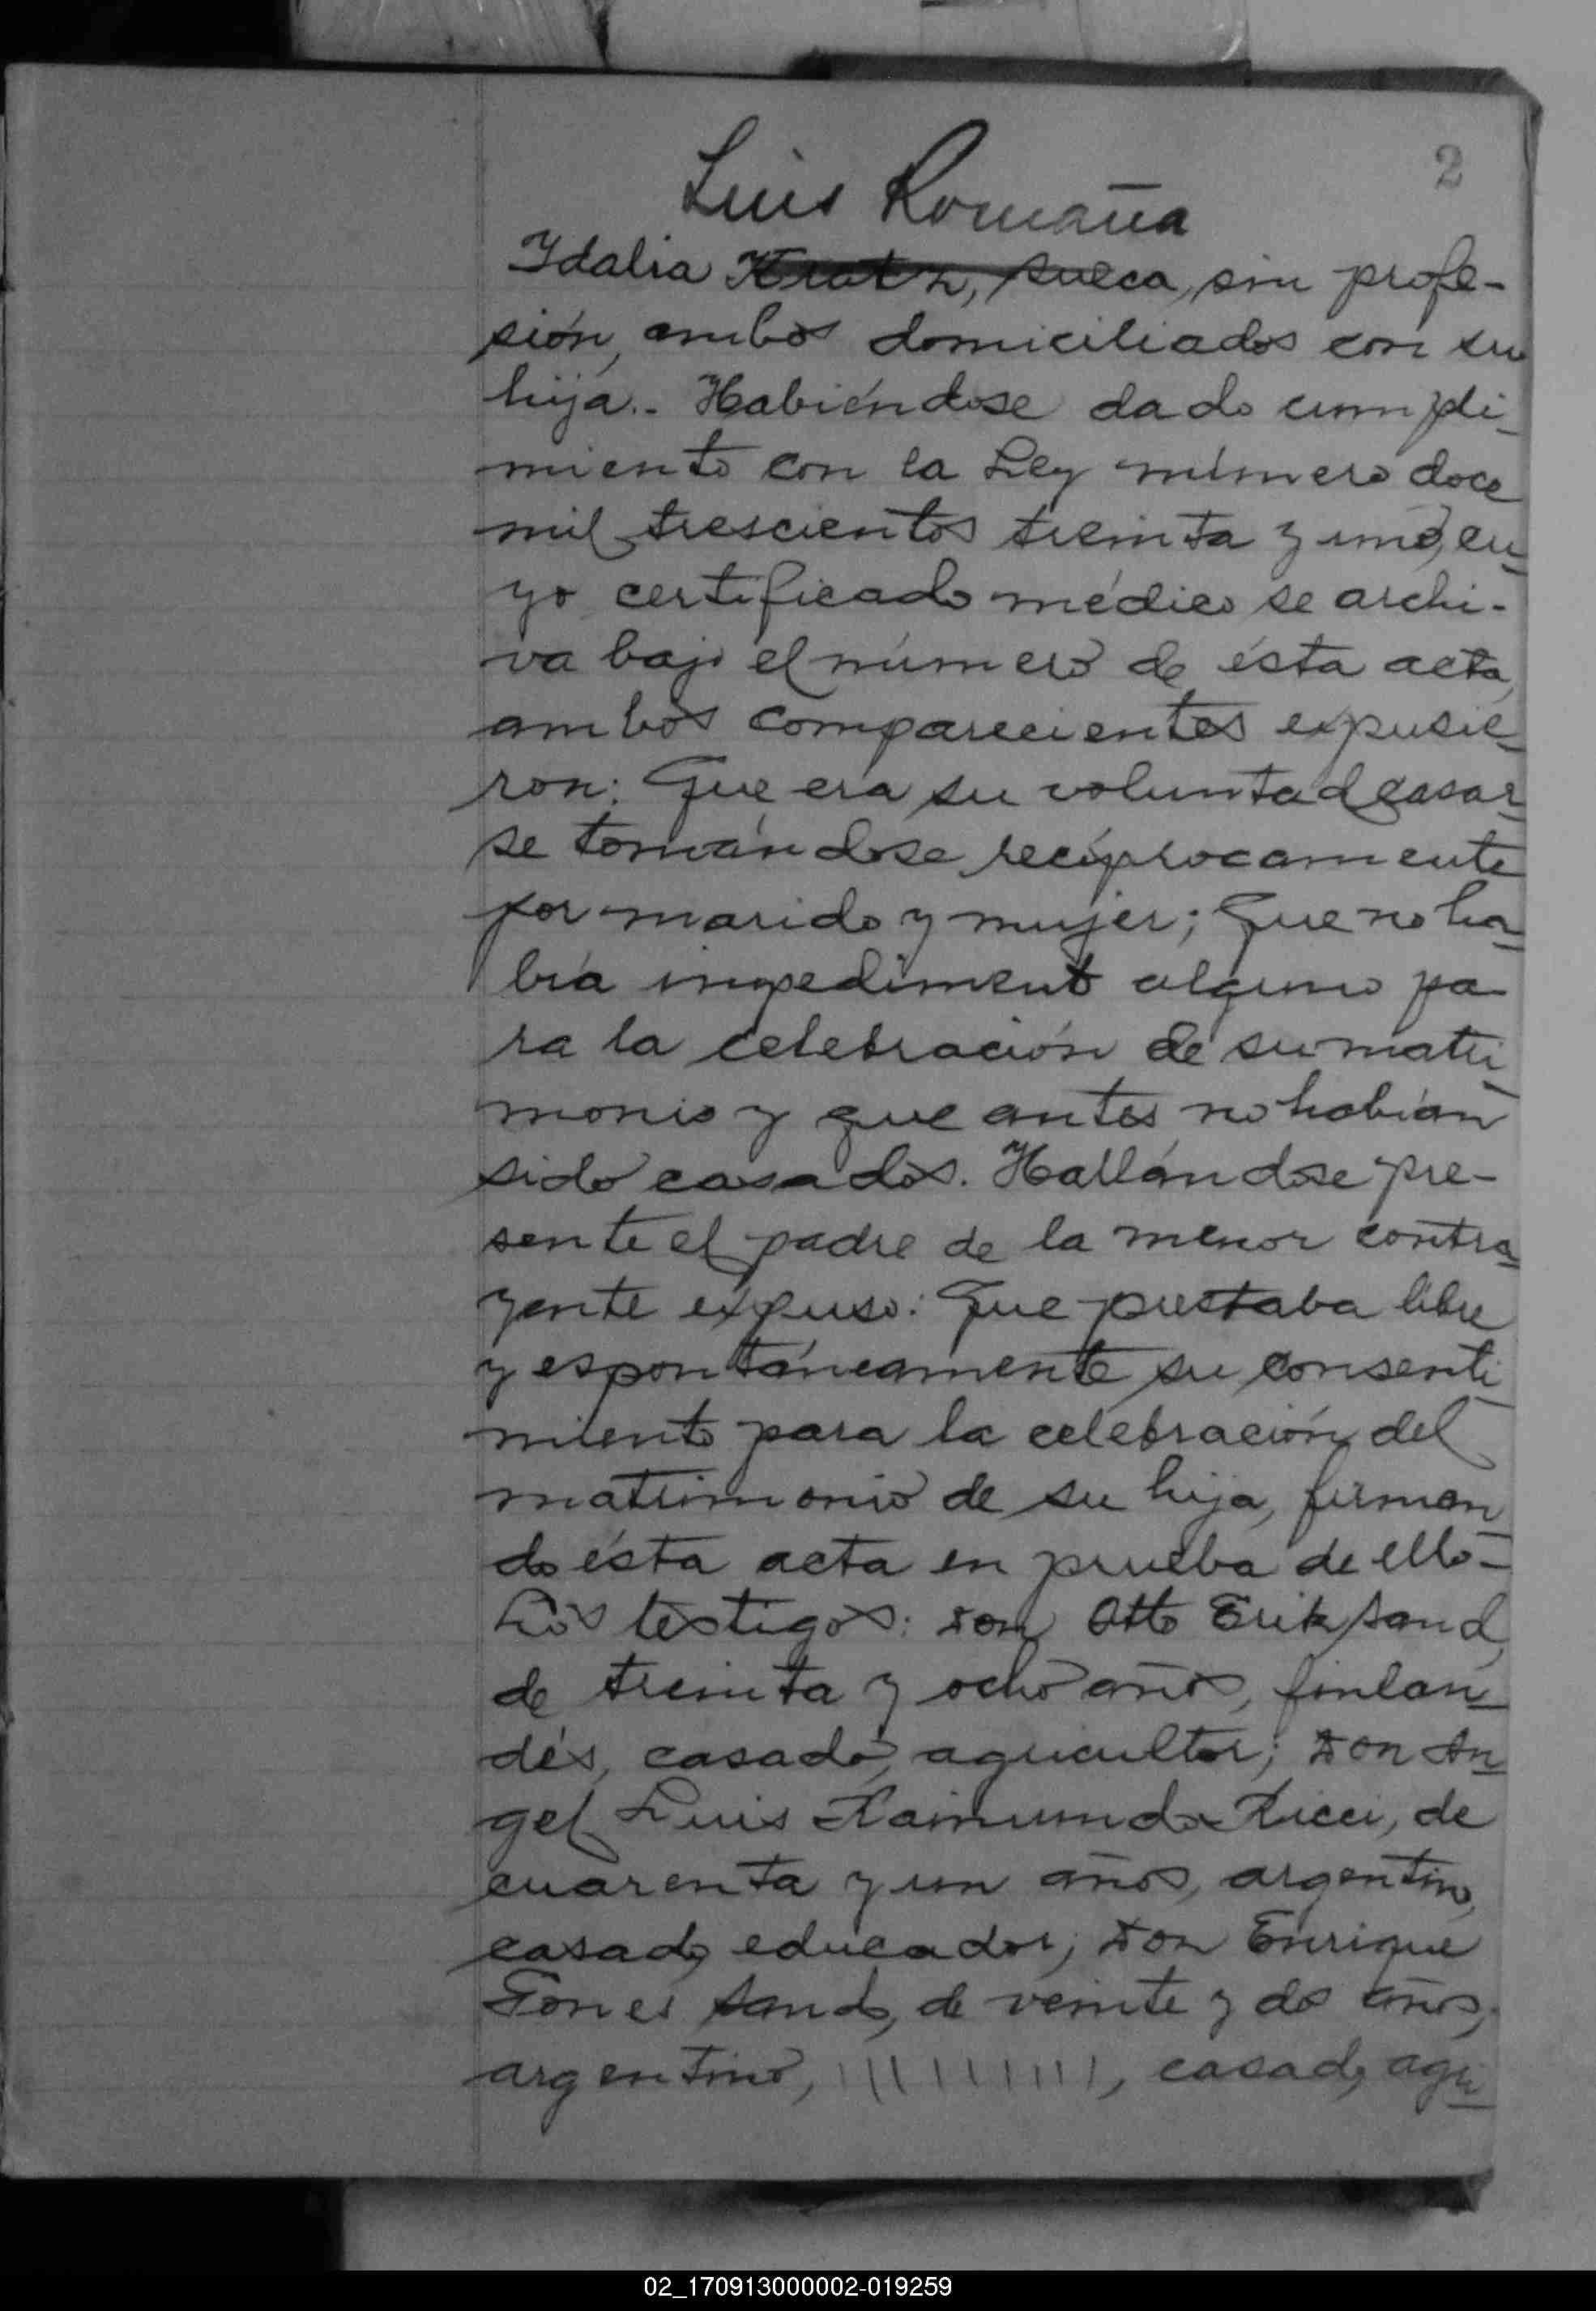 2
Luis Romaña
Idalia Kratz, sueca, sin profe-
sión, ambos domiciliados con su
hija.- Habiéndose dado cumpli-
miento con la Ley número doce
mil trescientos treinta y uno, cu-
yo certificado médico se archi-
va bajo el número de ésta acta,
ambos comparecientes expusie-
ron: Que era su voluntad casar-
se tomándose recíprocamente
por marido y mujer; Que no ha-
bía impedimento alguno pa-
ra la celebración de su matri-
monio y que antes no habían
sido casados. Hallándose pre-
sente el padre de la menor contra-
yente expuso: Que prestaba libre
y espontáneamente su consenti-
miento para la celebración del
matrimonio de su hija, firman-
do ésta acta en prueba de ello-
Los testigos: Don Otto Erik Sand,
de treinta y ocho años, finlan-
dés, casado, agricultor; Don An-
gel Luis Raimundo Ricci, de
cuarenta y un años, argentino,
casado, educador; Don Enrique
Sand, de veinte y dos años,
argentino, casado, agri-
02_170913000002-019259